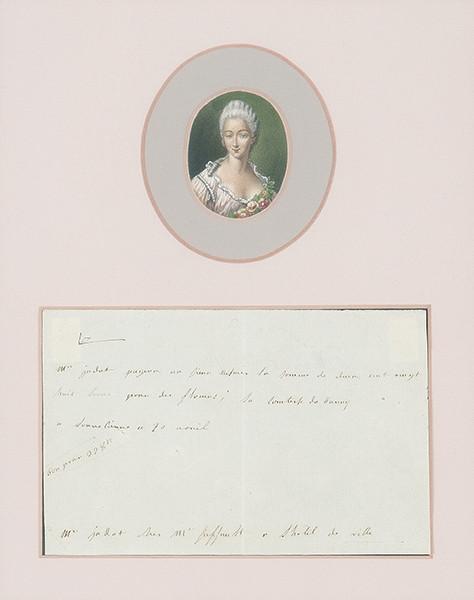 Mr jodot payera au sieur la somme de deux cent vingt
huit livre pour des fleurs; la comtesse du barry
a louveciennes ce 20 avril
bon pour 228 tt
Mr jodot chez Mr a l'hotel de ville